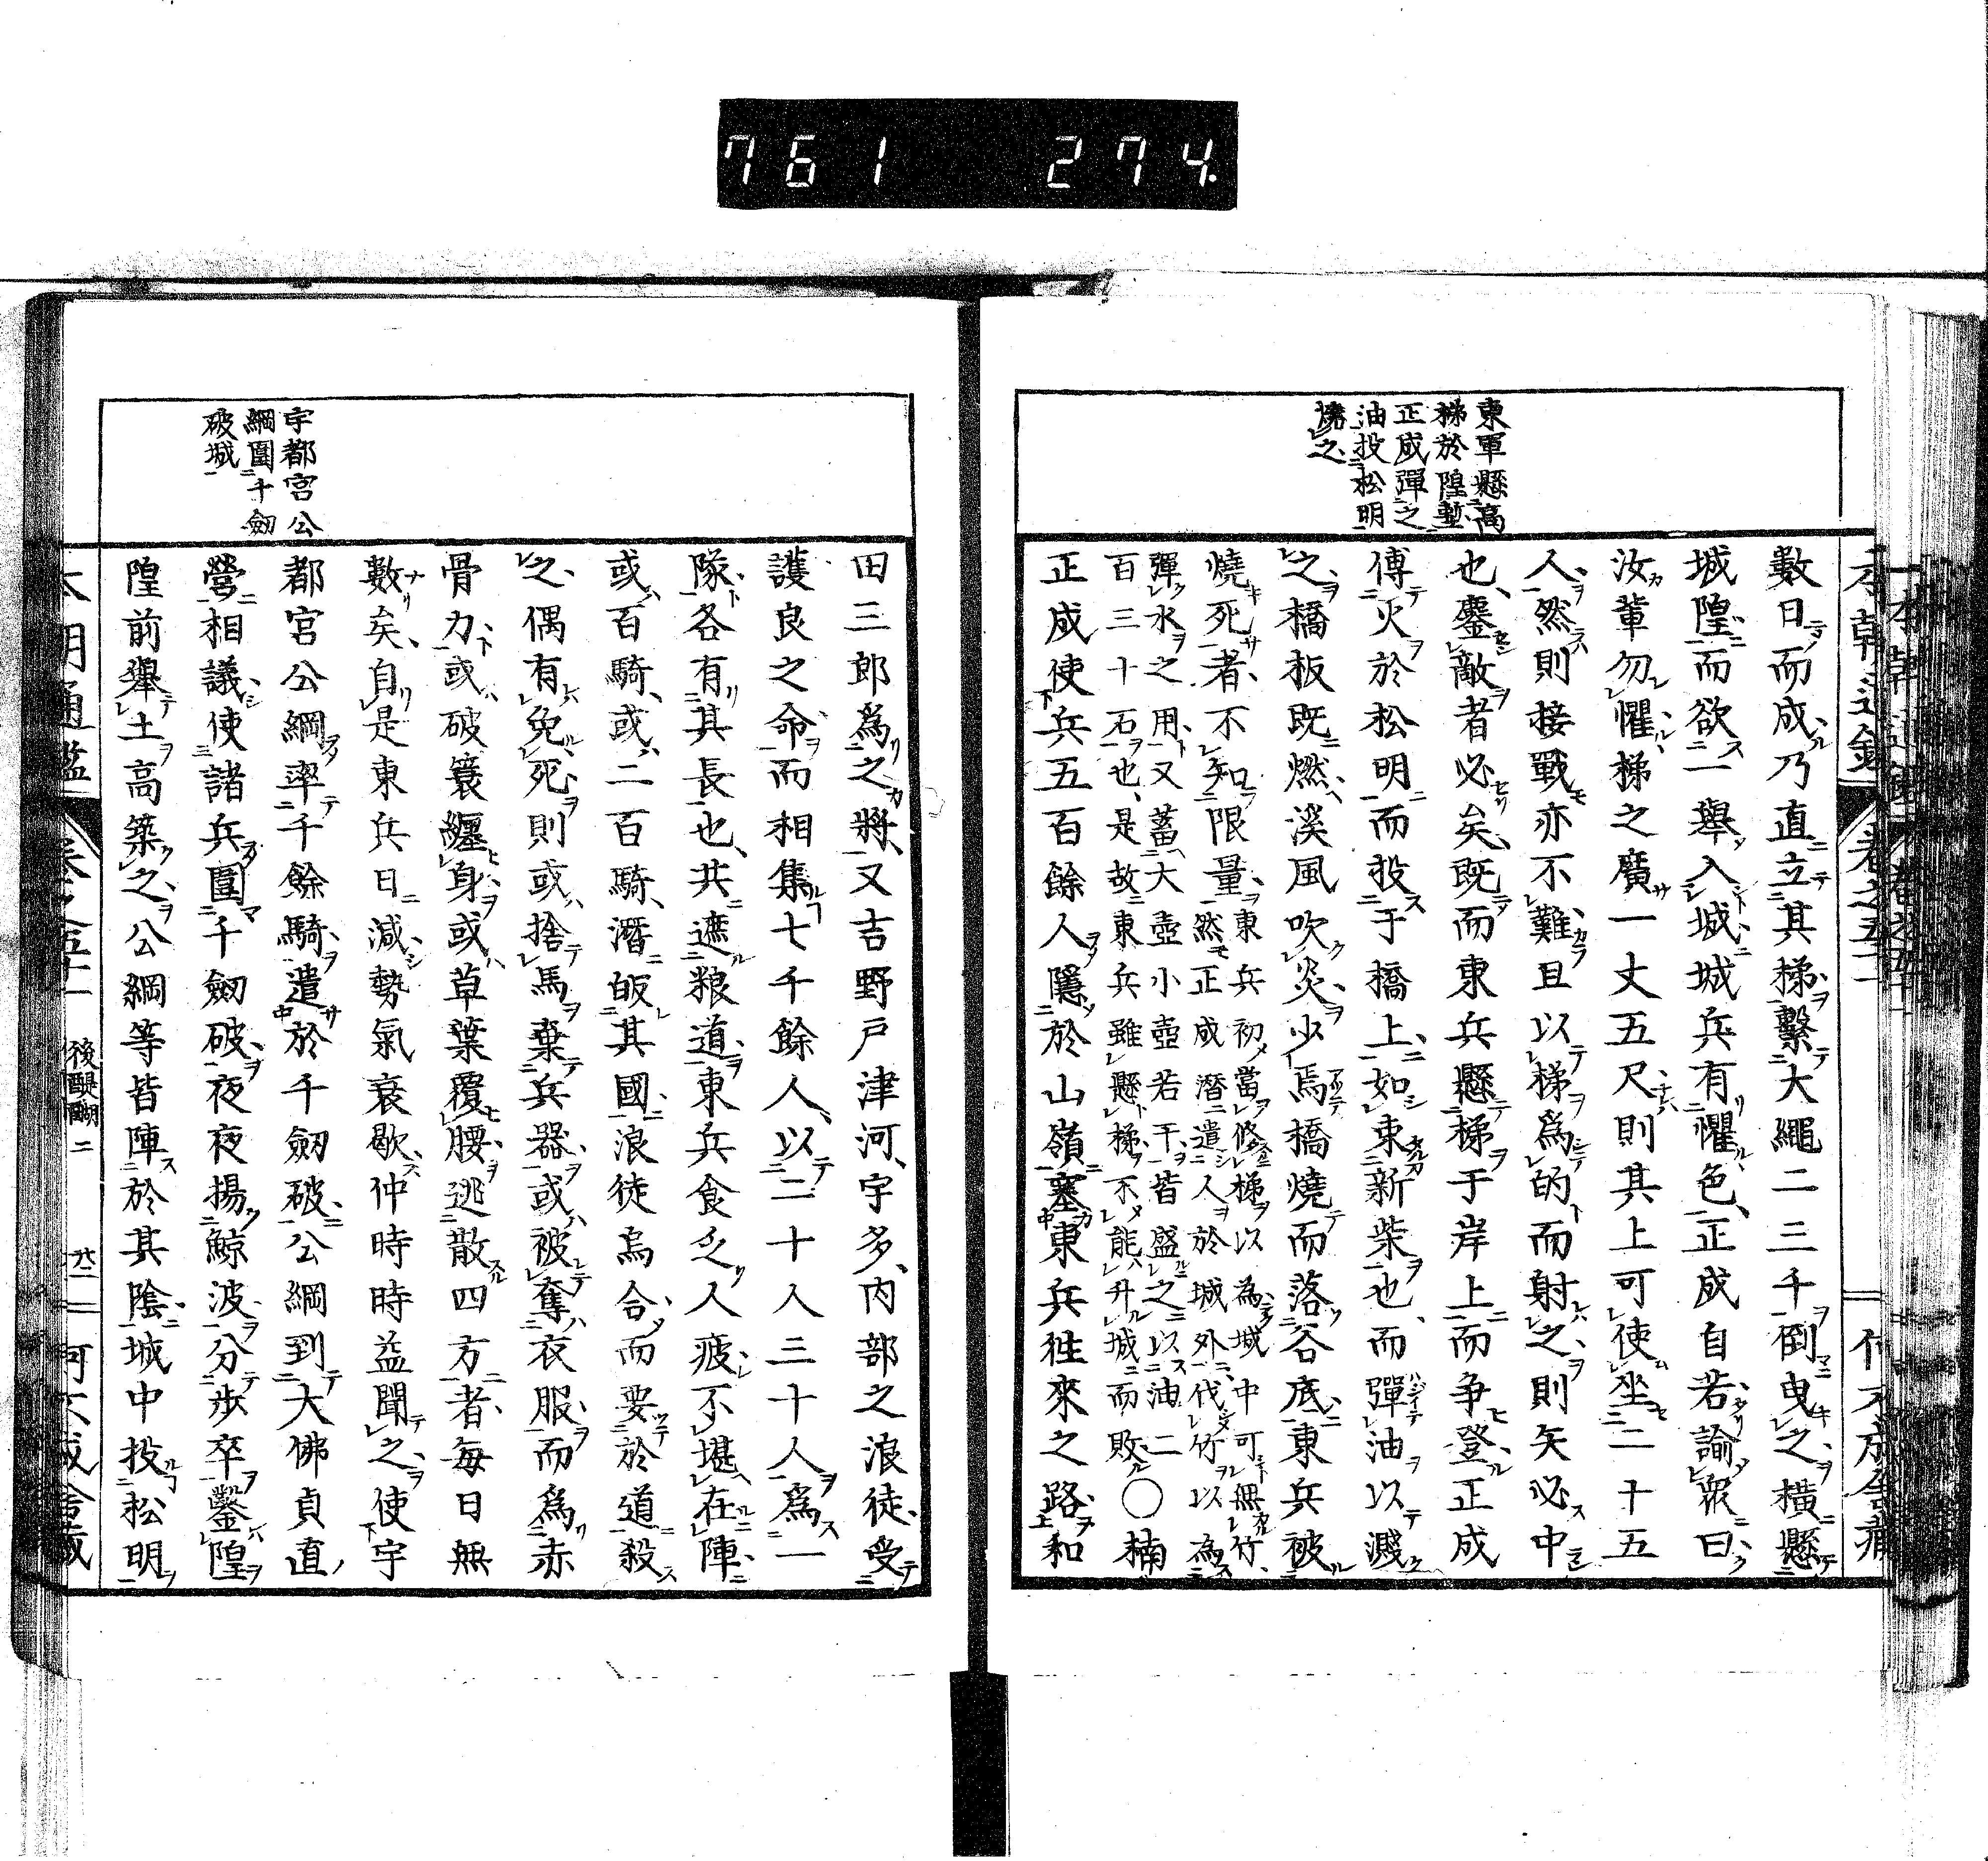 761 274.
東軍懸高
梯於隍塹
正成彈之
油投松明
燒之
數日而成乃直立其梯繫大繩二三千倒曳之橫懸
城隍而欲一舉入城城兵有懼色正成自若諭衆曰
汝輩勿懼梯之廣一丈五尺則其上可使坐二十五
人然則接戰亦不難且以梯爲的而射之則矢必中
也鏖敵者必矣既而東兵懸梯于岸上而争登正成
傅火於松明而投于橋上如束新柴也而彈油以濺
之橋板既燃溪風吹炎少焉橋燒而落谷底東兵被
燒死者不知限量
東兵初當修梯以為城中可無竹
然正成潛遣人於城外伐竹以為
彈水之用又蓄大壺小壺若干皆盛之以油二
百三十石也是故東兵雖懸梯不能升城而敗
○楠
正成使兵五百餘人隱於山嶺塞東兵徃來之路和
宇都宮公
綱圍千劔
破城
田三郎爲之將又吉野戸津河宇多内部之浪徒受
護良之命而相集七千餘人以二十人三十人爲一
隊各有其長也共遮粮道東兵食乏人疲不堪在陣
或百騎或二百騎潛皈其國浪徒烏合而要於道殺
之偶有免死則或捨馬棄兵器或被奪衣服而爲赤
骨力或破簑纏身或草葉覆腰逃散四方者毎日無
數矣自是東兵日減勢氣衰歇仲時時益聞之使宇
都宮公綱率千餘騎遣於千劔破公綱到大佛貞直
營相議使諸兵圍千劔破夜夜揚鯨波分步卒鑿隍
隍前舉土高築之公綱等皆陣於其陰城中投松明
後醍醐二